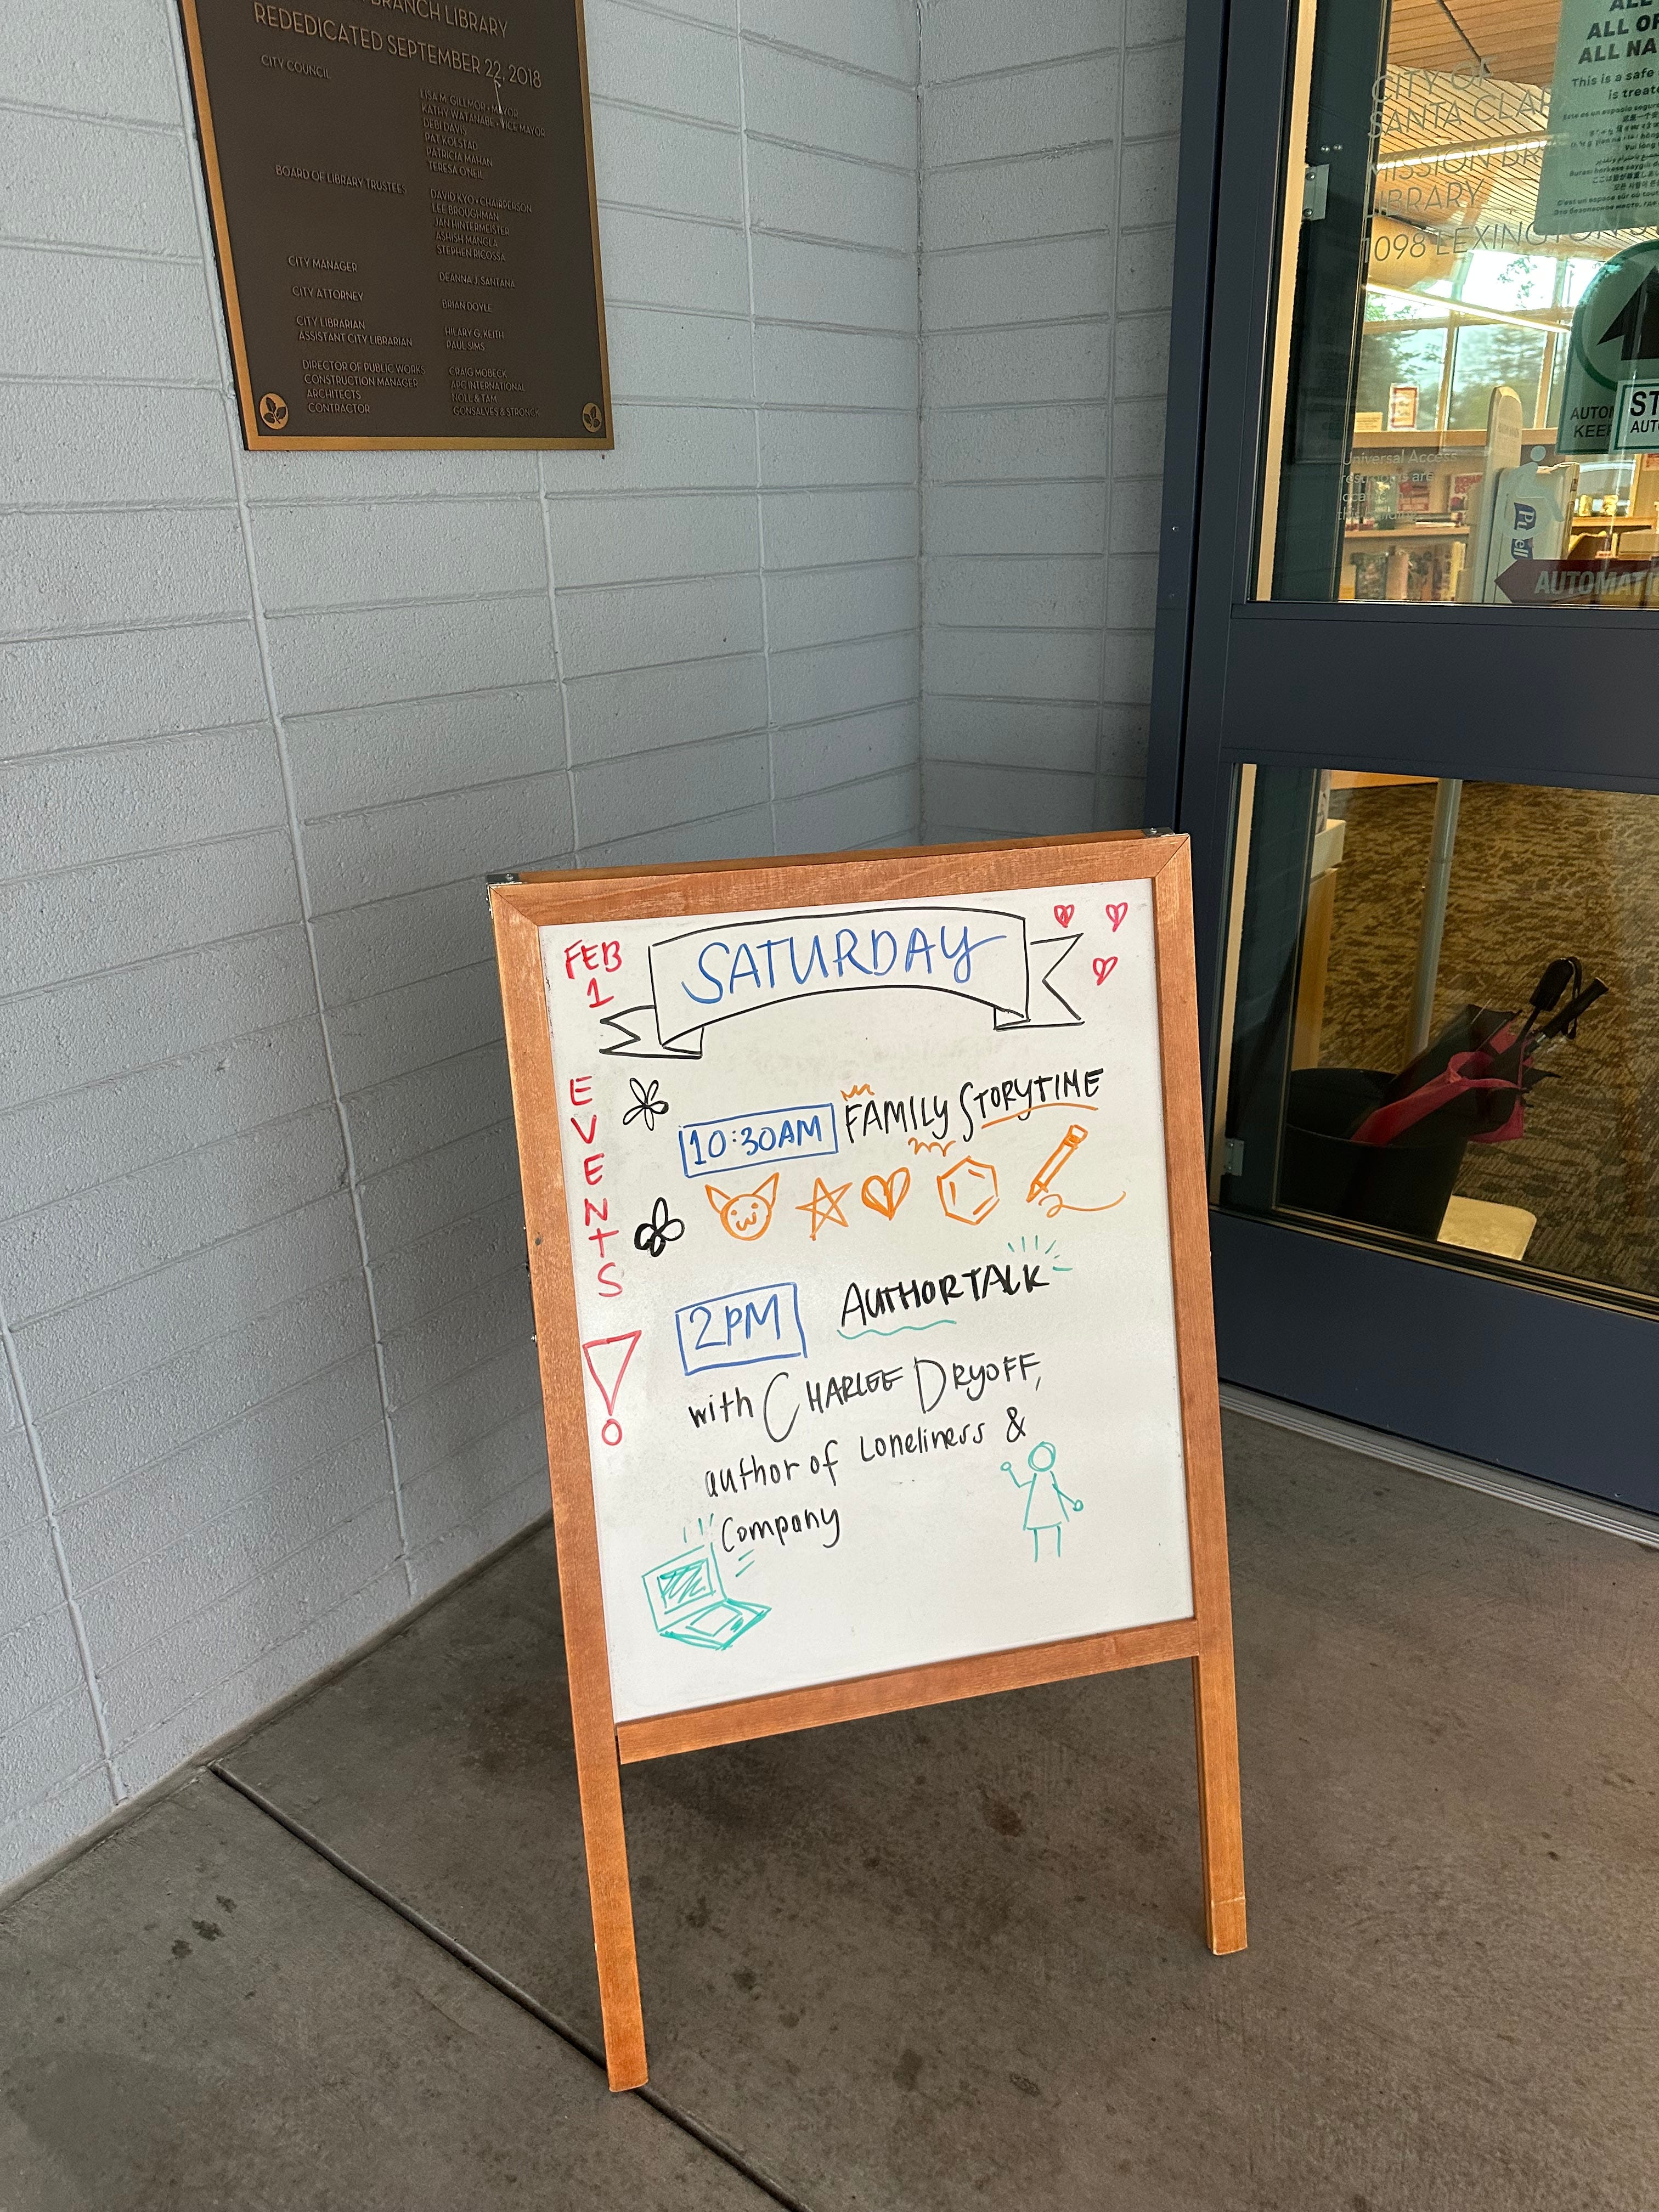 BRANCH LIBRARY
REDEDICATED SEPTEMBER 22, 2018
CITY COUNCIL
LISA M. GILLMOR • MAYOR
KATHY WATANABE • VICE MAYOR
DEBI DAVIS
PAT KOLSTAD
PATRICIA MAHAN
TERESA O'NEIL
BOARD OF LIBRARY TRUSTEES
DAVID KYO • CHAIRPERSON
LEE BROUGHMAN
JAN HINTERMEISTER
ASHISH MANGLA
STEPHEN RICOSSA
CITY MANAGER
DEANNA J. SANTANA
CITY ATTORNEY
BRIAN DOYLE
CITY LIBRARIAN
HILARY G. KEITH
ASSISTANT CITY LIBRARIAN
PAUL SIMS
DIRECTOR OF PUBLIC WORKS
CRAIG MOBECK
CONSTRUCTION MANAGER
APC INTERNATIONAL
ARCHITECTS
NOLL & TAM
CONTRACTOR
GONSALVES & STRONCK
ALL
ALL OR
ALL NA
This is a safe
is treate
CITY OF
SANTA CLAR
MISSION BR
LIBRARY
1098 LEXINGTON S
AUTO
KEE
ST
AUT
Universal Access
restrooms are
Purell
AUTOMATI
FEB
1
SATURDAY
EVENTS!
10:30AM FAMILY STORYTIME
2PM AUTHOR TALK
with CHARLEE DRYOFF,
author of Loneliness &
Company